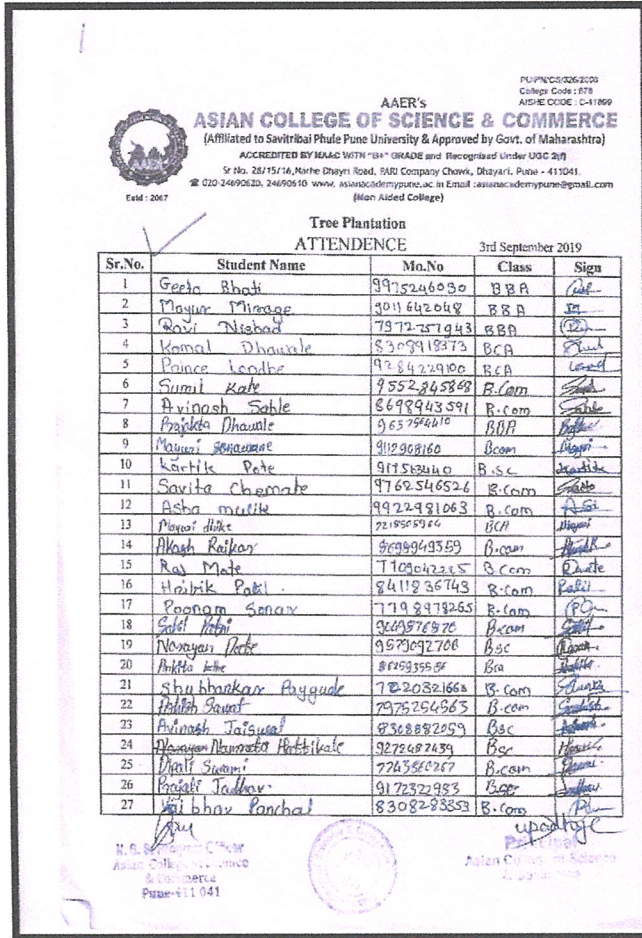 PU/PN/CS/326/2008
College Code : 878
AISHE CODE : C-41899
AAER's
ASIAN COLLEGE OF SCIENCE & COMMERCE
(Affiliated to Savitribai Phule Pune University & Approved by Govt. of Maharashtra)
ACCREDITED BY NAAC WITH "B+" GRADE and Recognised Under UGC 2(f)
Sr No. 28/15/16, Narhe Dhayri Road, PARI Company Chowk, Dhayari, Pune - 411041.
☎ 020-24690620, 24690610 www. asianacademypune.ac.in Email :asianacademypune@gmail.com
(Non Aided College)
Estd : 2007
Tree Plantation
ATTENDENCE 3rd September 2019
Sr.No. Student Name Mo.No Class Sign
1 Geeta Bhati 9975246030 BBA
2 Mayur Mirage 9011642048 BBA
3 Ravi Nishad 7972757943 BBA
4 Komal Dhawale 8308918373 BCA
5 Prince Londhe 9284229100 BCA
6 Sumit Kate 9552845868 B.Com
7 Avinash Sable 8698943591 B.com Sable
8 Prajakta Dhawale 9637564410 BBA
9 Mayuri Sonawane 9112908160 Bcom Mayuri
10 Kartik Pote 917563440 B.sc Kartik
11 Savita Chemate 9762546526 B.Com
12 Asha mulik 9922981063 B.com
13 Mayuri dhike 7218505964 BCA Mayuri
14 Akash Raikar 8698949359 B.com
15 Raj Mate 7709042225 B.Com
16 Patil 8411836743 B.Com Patil
17 Poonam Sonar 7798978265 B.Com
18 B.com
19 Narayan 9579092706 Bsc
20 Ankita Bca
21 Shubhankar Paygude 7820321668 B.Com
22 Sawat 7975254563 B.com
23 Avinash Jaiswal 8308882059 Bsc
24 Namrata Hattikate 9272482439 Bsc
25 Dipali Swami 7743860267 B.com
26 Prajali Jadhav 9172322983
27 Vaibhav Panchal 8308283353 B.Com
upadhye
Officer Principal
Asian College of Science Asian College of Science
& Commerce
Pune-411 041